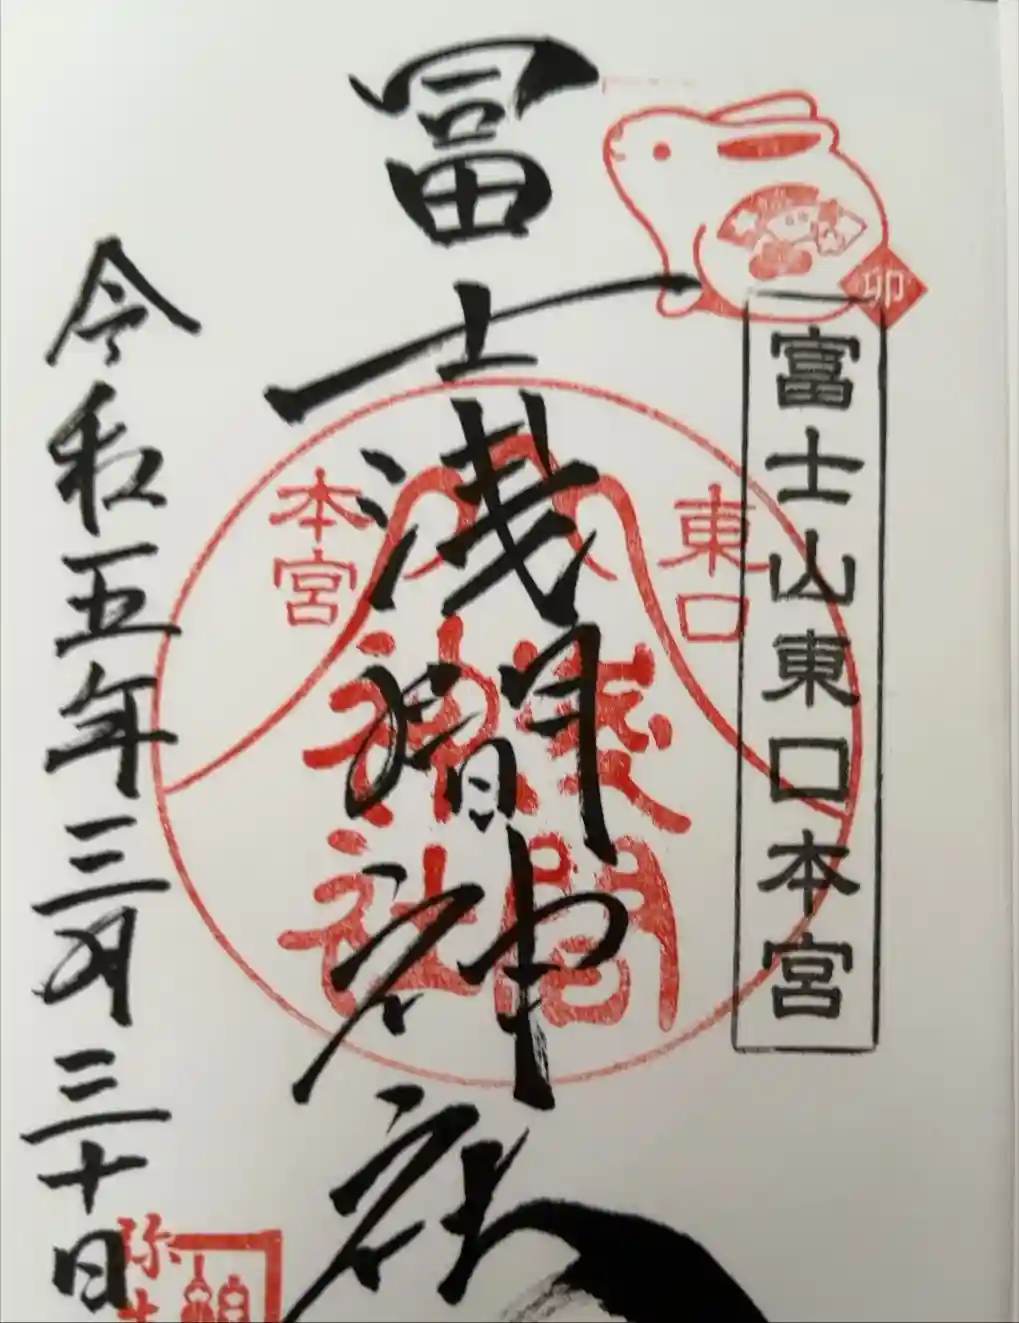 卯
富士山東口本宮
冨士浅間神社
東口
本宮
浅間
神社
令和五年三月三十日
弥